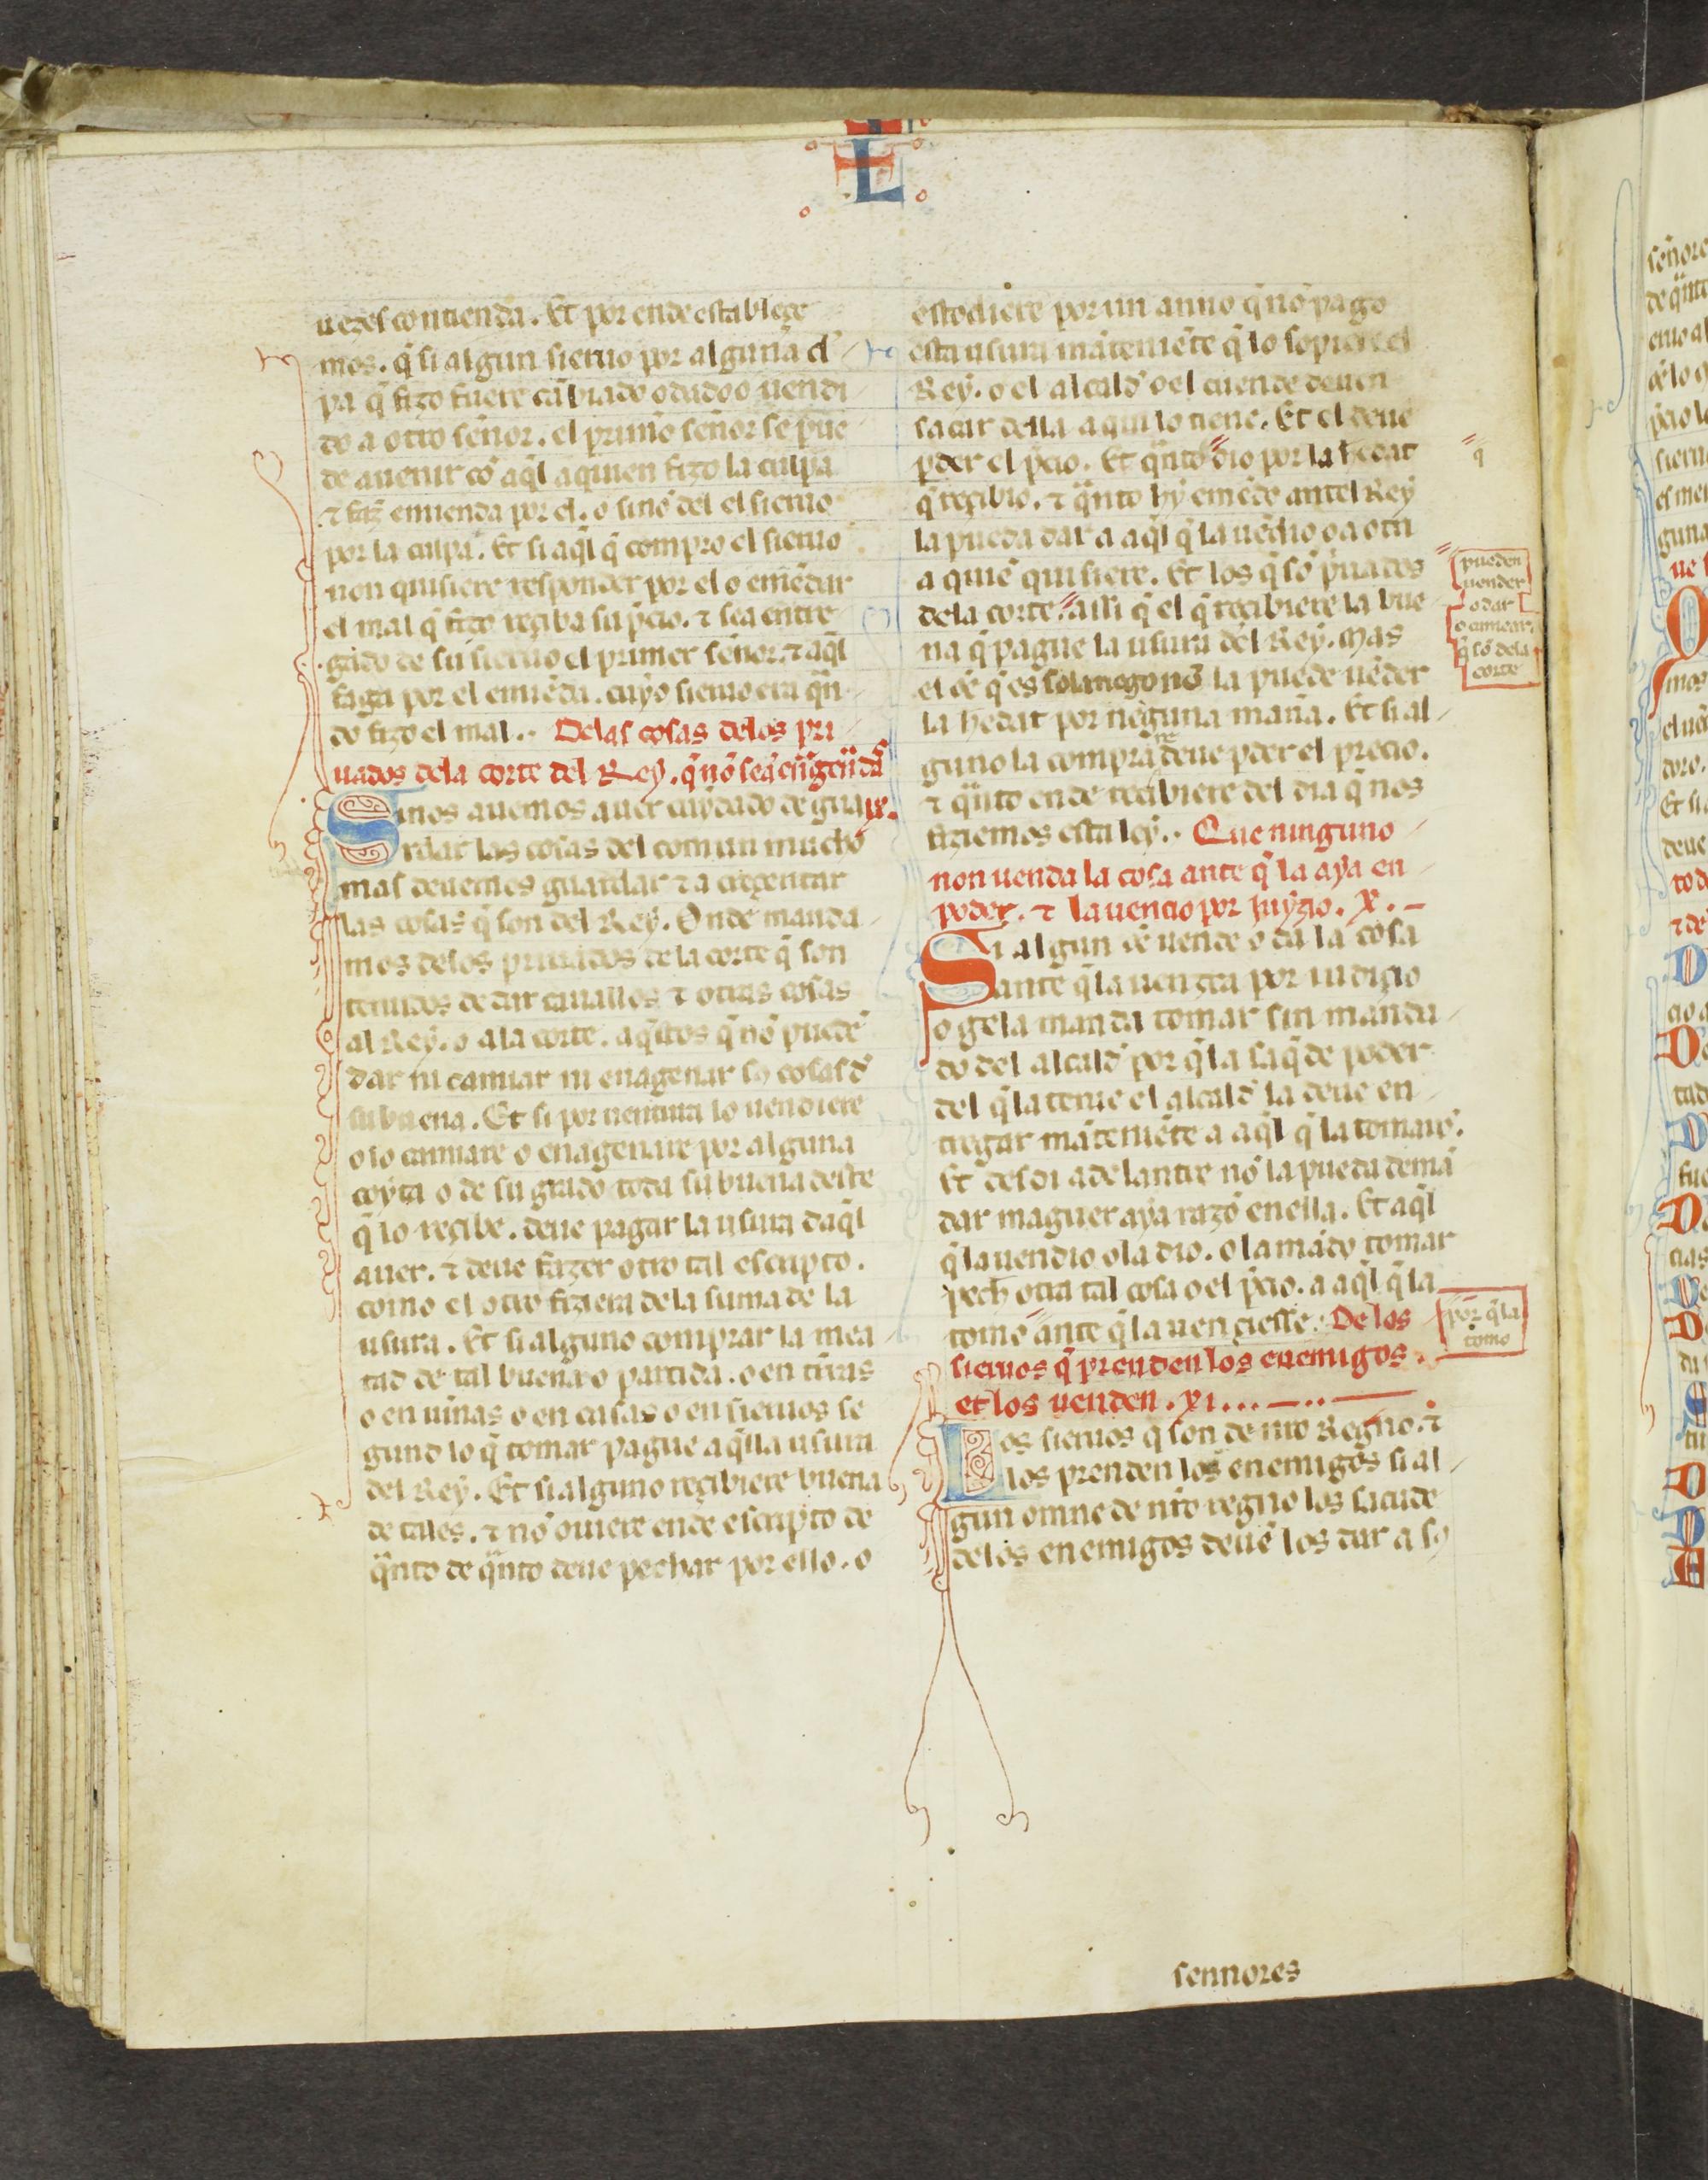 L
uezes contienda. Et por ende estableçe
mos. q̃ si algun sieruo por alguna cl᷎
pa q̃ fizo fuere cãbiado o dado o uendi
do a otro señor. el prim̃o señor se pue
de auenir cõ aq̃l a quien fizo la culpa
⁊ faz̃ emienda por el. o sinõ del el sieruo
por la culpa. Et si aq̃l q̃ compro el sieruo
non quisiere responder por el o emẽdar
el mal q̃ fizo reçiba su p̃cio. ⁊ sea entre
gado de su sieruo el primer señor. ⁊ aq̃l
faga por el emiẽda. cuyo sieruo era q̃n
do fizo el mal.. Delas cosas delos pri
uados dela corte del Rey. q̃ nõ
Si nos auemos auer cuydado de gua ix.
rdar las cosas del comun mucho
mas deuemos guardar ⁊ a creçentar
las cosas q̃ son del Rey. Onde manda
mos delos priuados de la corte q̃ son
tenudos de dar cauallos ⁊ otras cosas
al Rey. o ala corte. aq̃stos q̃ nõ puedẽ
dar ni camiar ni enagenar so cosas d᷎
su buena. Et si por uentura lo uendiere
o lo camiare o enagenare por alguna
coyta o de su grado toda su buena deste
q̃ lo reçibe. deue pagar la usura daq̃l
auer. ⁊ deue fazer otro tal escripto.
como el otro fiziera dela suma de la
usura. Et si alguno comprar la mea
tad de tal buena o partida. o en tr̃ras
o en uiñas o en casas o en sieruos se
gund lo q̃ tomar pague aq̃lla usura
del Rey. Et si alguno reçibiere buena
de tales. ⁊ nõ ouiere ende escripto de
q̃nto de q̃nto deue pechar por ello. o
estodiere por un anno q̃ nõ pago
esta usura mãteniẽte q̃ lo sopiere el
Rey. o el alcald᷎ o el cuende deuen
sacar della a qui lo tiene. Et el deue
p̱der el p̃cio. Et q̃nto dio por la hedat
q̃ reçibio. ⁊ q̃nto hy emẽdo antel Rey
q̃
la pueda dar a aq̃l q̃ la uẽdio o a otri
a quiẽ quisiere. Et los q̃ sõ p̃uados
dela corte assi q̃ el q̃ reçibiere la bue
pueden
uender
o dar
o camear.
q̃ sõ dela
corte
na q̃ pague la usura del Rey. Mas
el de q̃ es solariego nõ la puede uẽder
la hedat por nẽguna mañã. Et si al
guno la comprare deue p̱der el precio.
⁊ q̃nto ende reçibiere del dia q̃ nos
fiziemos esta ley.. Que ninguno
non uenda la cosa ante q̃ la aya en
poder. ⁊ la uencio por juyzio. X.
Si algun õe uende o da la cosa
ante q̃ la uenzca por iudiçio
o gela manda tomar sin manda
do del alcald᷎ por q̃ la saq̃ de poder
del q̃ la tenie el alcald᷎ la deue en
tregar mãteniẽte a aq̃l q̃ la tomarõ.
Et desdi adelantre nõ la pueda demã
dar maguer aya razõ en ella. Et aq̃l
q̃ la uendio o la dio. o la mãdo tomar
pech otra tal cosa o el p̃cio. a aq̃l q̃ la
tomo ante q̃ la uenciesse. De los
por q̃ la
tomo
sieruos q̃ prenden los enemigos.
et los uenden. xi...
Los sieruos q̃ son de nr̃o Regno. ⁊
los prenden los enemigos si al
gun omne de nr̃o regno los sacude
delos enemigos deue los dar a so
sennores